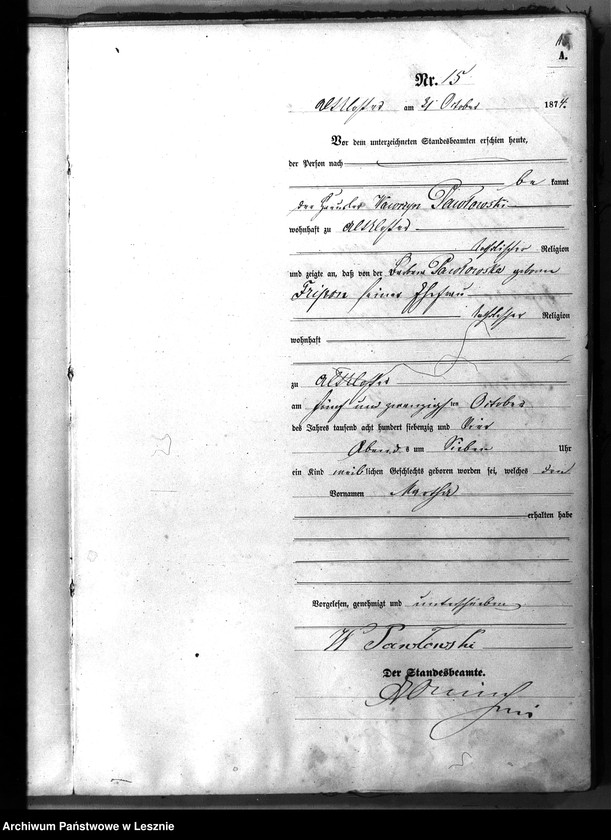 A.
Nr. 15
Altkloster am 31 October 1874.
Vor dem unterzeichneten Standesbeamten erschien heute,
der Person nach
be kannt
der Häusler Wawrzyn Pawłowski
wohnhaft zu Altkloster
katholischer Religion
und zeigte an, daß von der Barbara Pawłowska geborne
seiner Ehefrau
katholischer Religion
wohnhaft
zu Altkloster
am fünf und zwanzigsten October
des Jahres tausend acht hundert siebenzig und vier
Abends um Sieben Uhr
ein Kind weiblichen Geschlechts geboren worden sei, welches den
Vornamen Martha
erhalten habe
Vorgelesen, genehmigt und unterschrieben
W Pawłowski
Der Standesbeamte.
Archiwum Państwowe w Lesznie